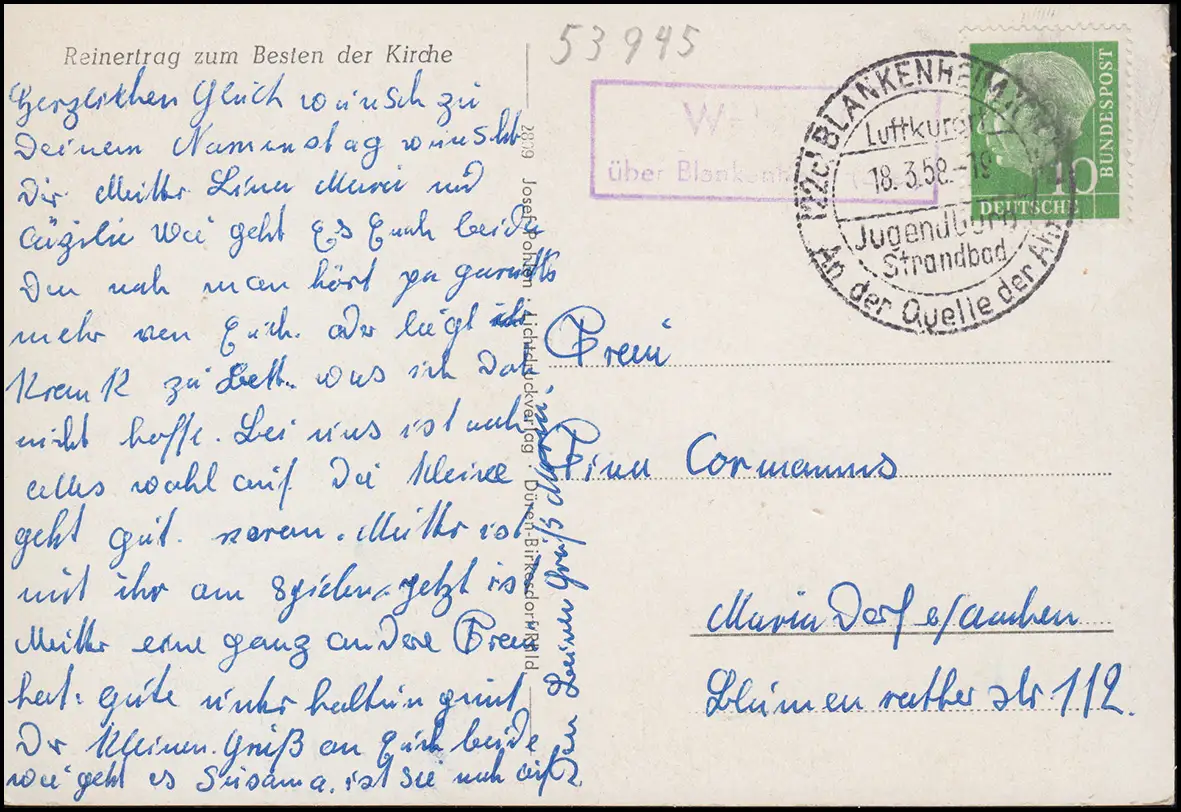 Reinertrag zum Besten der Kirche
Herzlichen Glück wünsch zu
Deinem Namenstag wünscht
Dir Mutter Lina Maria und
Cäzilie wie geht Es Euch beide
Den nah man hört ja garnichts
mehr von Euch. oder liegt ihr
Krank zu Bett. was ich Doch
nicht hoffe. Bei uns ist noch
alles wohl auf Die Kleine
geht gut voran. Mutter ist
mit ihr am spielen, jetzt ist
Mutter eine ganz andere Frau
hat gute unter haltung mit
Der Kleinen. Gruß an Euch beide
wie geht es Susanna. ist sie noch auf?
2819 Josef Pohlen · Lichtdruckverlag · Düren-Birkesdorf/Rhld
53945
über Blankenheim
(22c) BLANKENHEIM
Luftkurort
18.3.58.-19
Jugendburg
Strandbad
An der Quelle der Ahr
BUNDESPOST
10
DEUTSCHE
Frau
Fina Cormanns
Maria Dorf b/Aachen
Blumenrather str. 112.